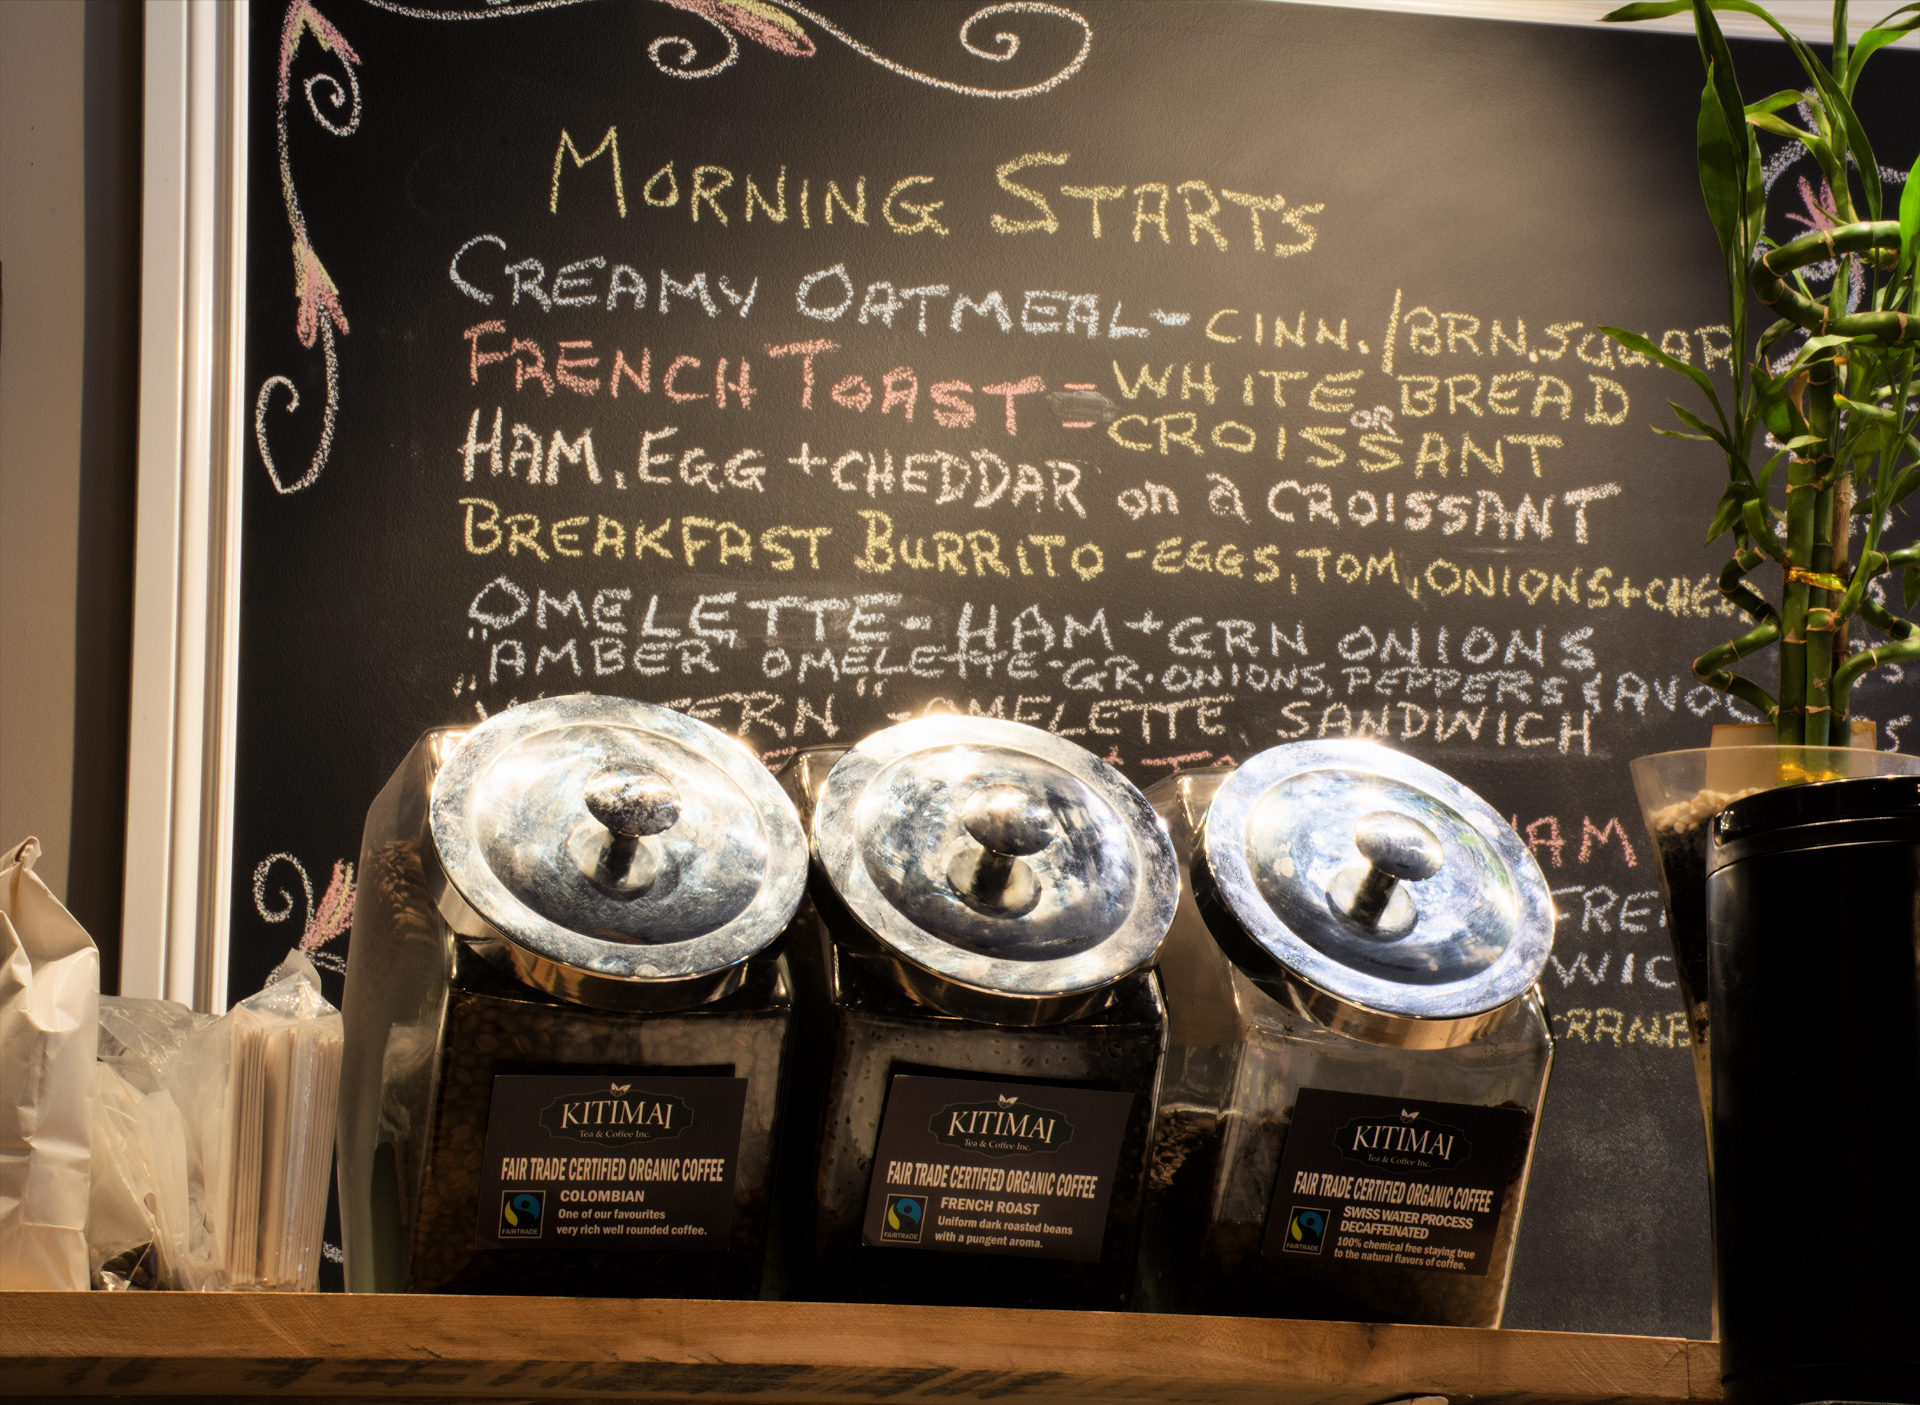 MORNING STARTS
CREAMY OATMEAL - CINN./BRN.SUGAR
FRENCH TOAST = WHITE BREAD
OR
CROISSANT
HAM, EGG + CHEDDAR on a CROISSANT
BREAKFAST BURRITO - EGGS, TOM, ONIONS + CHE
OMELETTE - HAM + GRN ONIONS
"AMBER" OMELETTE - GR. ONIONS, PEPPERS & AVO
ERN" - OMELETTE SANDWICH
HAM
FRE
WIC
CRANB
KITIMAT
Tea & Coffee Inc.
FAIR TRADE CERTIFIED ORGANIC COFFEE
COLOMBIAN
One of our favourites
very rich well rounded coffee.
FAIRTRADE
KITIMAT
Tea & Coffee Inc.
FAIR TRADE CERTIFIED ORGANIC COFFEE
FRENCH ROAST
Uniform dark roasted beans
with a pungent aroma.
FAIRTRADE
KITIMAT
Tea & Coffee Inc.
FAIR TRADE CERTIFIED ORGANIC COFFEE
SWISS WATER PROCESS
DECAFFEINATED
100% chemical free staying true
to the natural flavors of coffee.
FAIRTRADE